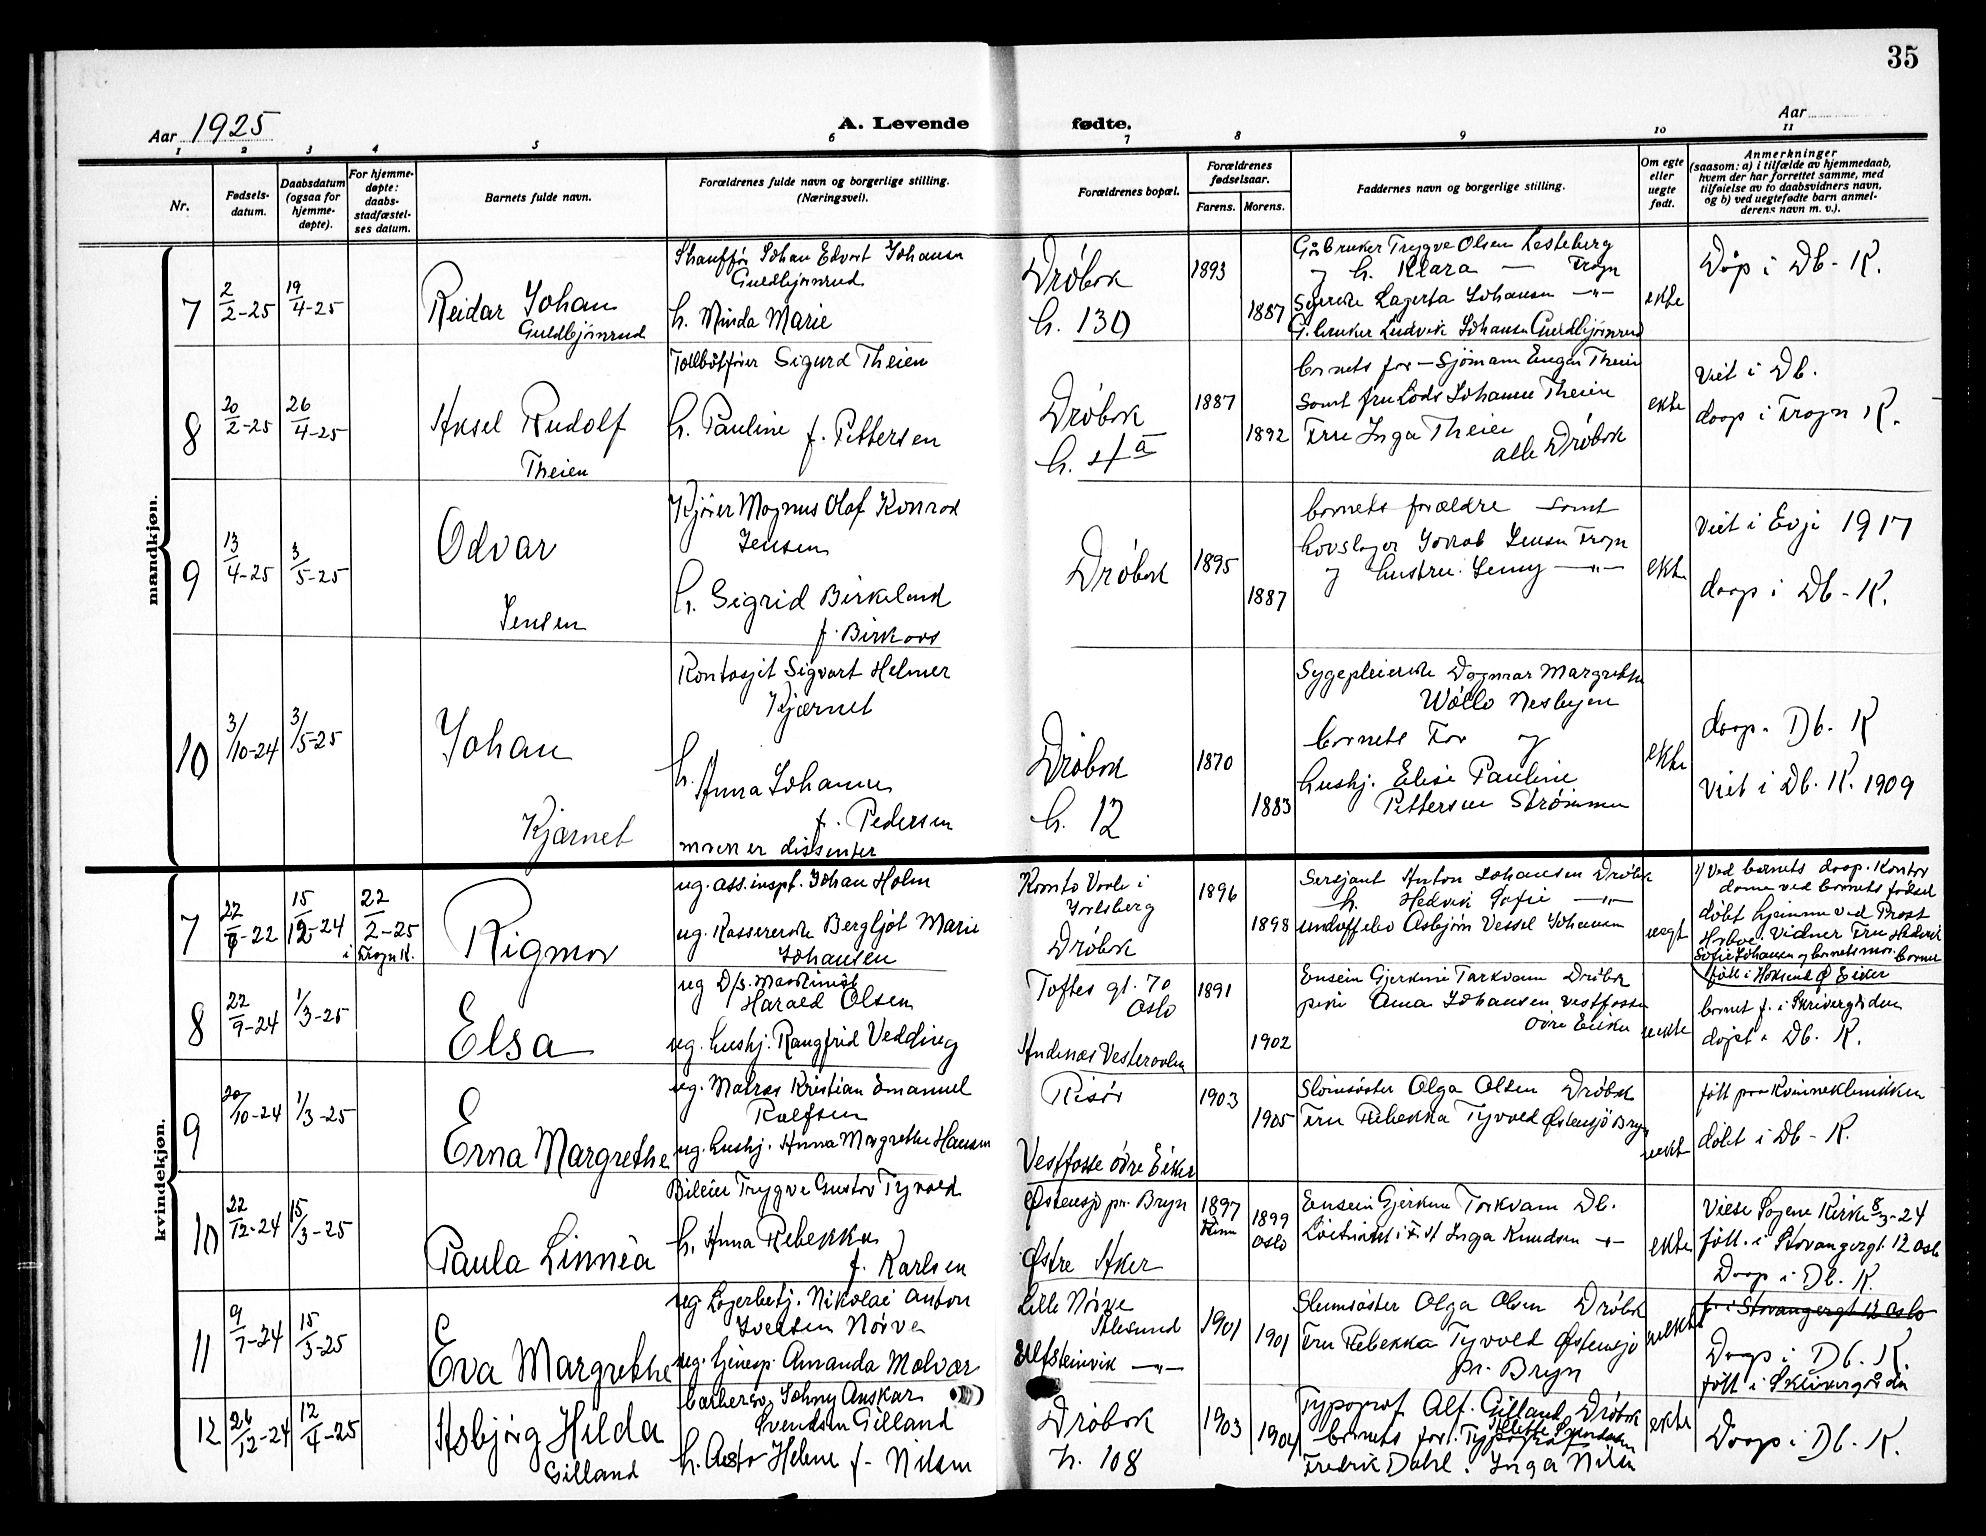 35
Aar 1925
A. Levende fødte.
Aar
1 2 3 4 5 6 7 8 9 10 11
Nr.
Fødsels-
datum.
Daabsdatum
(ogsaa for
hjemme-
døpte).
For hjemme-
døpte:
daabs-
stadfæstel-
ses datum.
Barnets fulde navn.
Forældrenes fulde navn og borgerlige stilling.
(Næringsvei).
Forældrenes bopæl.
Forældrenes
fødselsaar.
Farens. Morens.
Faddernes navn og borgerlige stilling.
Om egte
eller
uegte
født.
Anmerkninger
(saasom: a) i tilfælde av hjemmedaab,
hvem der har forrettet samme, med
tilføielse av to daabsvidners navn,
og b) ved uegtefødte barn anmel-
derens navn m. v.).
mandkjøn.
7
2/2-25
19/4-25
Reidar Johan
Guldbjørnrud
Johan Edvart Johansen
Guldbjørnrud
h. Minda Marie
Drøbak
h. 130
1893
1887
Gåbruker Trygve Olsen Lesteberg
og h. Klara — Frogn
Lagerta Johansen —"—
G.bruker Ludvik Johansen Guldbjørnrud
ekte
Døp i Db-K.
8
20/2-25
26/4-25
Aksel Rudolf
Theien
Sigurd Theien
h. Pauline f. Pettersen
Drøbak
h. 4a
1887
1892
barnets far — Sjømann Theien
samt fru Lods Johanne Theien
Fru Inga Theien
alle Drøbak
ekte
Viet i Db.
daap i Frogn K.
9
13/4-25
3/5-25
Odvar
Jensen
Kjører Magnus Olaf Konrad
Jensen
h. Sigrid Birkeland
f. Birkaas
Drøbak
1895
1887
barnets forældre samt
hovslager Jensen Frogn
og hustru Jenny —"—
ekte
Viet i Evje 1917
daap i Db-K.
10
3/10-24
3/5-25
Johan
Kjærnet
Sigvart Helmer
Kjærnet
h.
Anna Johanne
f. Pedersen
moren er dissenter
Drøbak
h. 12
1870
1883
Sygepleierske Dagmar Margrethe
Nesbyen
barnets Far og
hushj. Elise Pauline
Pettersen Strømmen
ekte
daap. Db. K
Viet i Db. K. 1909
kvindekjøn.
7
22/9-22
15/12-24
22/2-25
i Frogn K.
Rigmor
ug. ass.inspt. Johan Holm
ug. Kassererske Bergljot Marie
Johansen
Jarlsberg
Drøbak
1896
1898
Sersjant Anton Johansen Drøbak
h. Hedvik Sofie —"—
Asbjørn Vessel Johansen
uegt
1) Ved barnets daap. Kontor
dame ved barnets fødsel
døbt hjemme ved Prost
Vidner Fru Hedvik
Sofie Johansen og barnets mor. barnet
født i Ø Eiker
8
22/9-24
1/3-25
Elsa
ug D/s. Maskinist
Harald Olsen
ug. hushj. Rangfrid Vedding
Toftes gt. 70
Oslo
Andenæs Vesteraalen
1891
1902
Ensein Gjerkine Torkvam Drøbak
pike Anna Johansen Vestfossen
øvre Eiker
uekte
barnet f. i Skrivergården
døpt i Db. K.
9
20/10-24
1/3-25
Erna Margrethe
ug. Matros Kristian Emanuel
Ralfsen
ug. hushj. Anna Margrethe Hansen
Risør
Vestfosse øvre Eiker
1903
1905
Slumsøster Olga Olsen Drøbak
Fru Rebekka Tyvold Østensjø Bryn
uekt
født paa Kvinneklinikken
døbt i Db-K.
10
22/12-24
15/3-25
Paula Linnèa
Bileier Trygve Gustav Tyvold
h. Anna Rebekka
f. Karlsen
Østensjø pr. Bryn
Østre Aker
1897
1899
Oslo
Ensein Gjerkine Torkvam Db.
Løitnant i F.A Inga Knudsen —"—
ekte
Viese Sagene Kirke 8/3-24
født. i Stavangergt. 12 Oslo
Daap i Db. K.
11
9/7-24
15/3-25
Eva Margrethe
ug. Lagerbetj. Nikolai Anton
Iversen Nørve
ug. tjenesp. Amanda Malvær
Lille Nørve
Ålesund
Ulfsteinvik —"—
1901
1901
Slumsøster Olga Olsen Drøbak
Fru Rebekka Tyvold Østensjø
pr. Bryn
uekte
f. i Stavangergt 12 Oslo
Daap i Db. K.
født i Skrivergården
12
26/12-24
12/4-25
Asbjørg Hilda
Gilland
barbersv. Johny Anskar
Svendsen Gilland
h. Asta Helene f. Nilsen
Drøbak
h. 108
1903
1904
Typograf Alf. Gilland Drøbak
barnets for.
Fredrik Dahl. Inga Nilsen
ekte
Daap i Db. K.